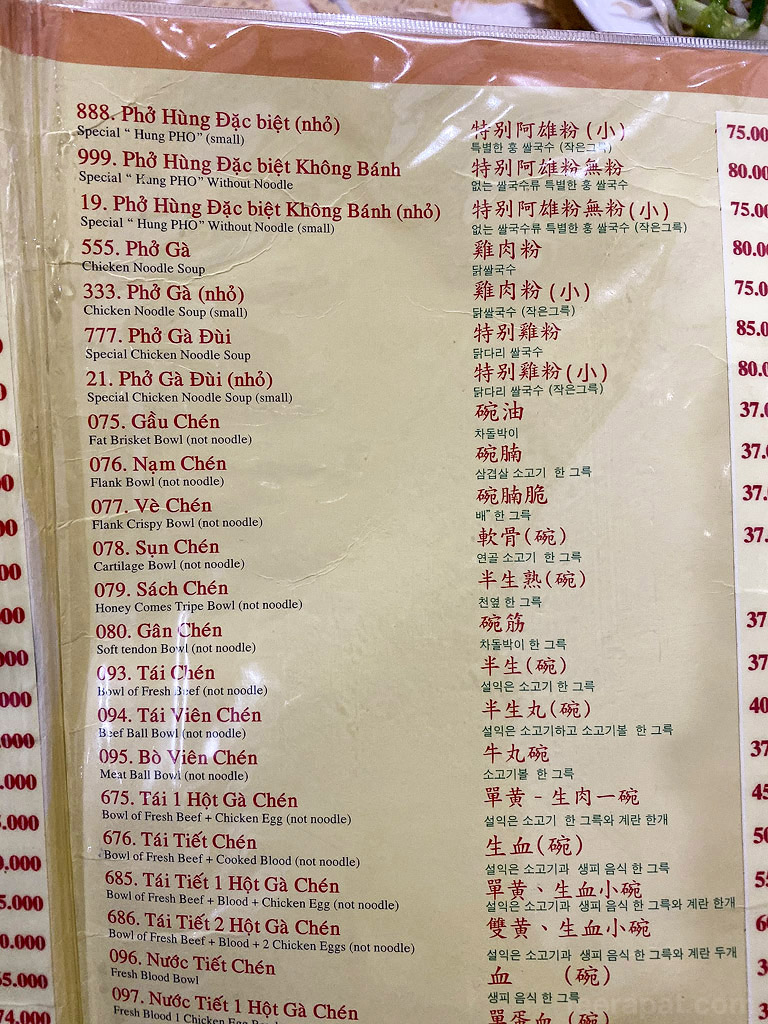 888. Phở Hùng Đặc biệt (nhỏ)
Special “ Hung PHO” (small)
特别阿雄粉 (小)
특별한 홍 쌀국수 (작은그릇)
75.00
999. Phở Hùng Đặc biệt Không Bánh
Special “ Hung PHO” Without Noodle
特别阿雄粉無粉
없는 쌀국수류 특별한 홍 쌀국수
80.00
19. Phở Hùng Đặc biệt Không Bánh (nhỏ)
Special “ Hung PHO” Without Noodle (small)
特别阿雄粉無粉(小)
없는 쌀국수류 특별한 홍 쌀국수 (작은그릇)
75.00
555. Phở Gà
Chicken Noodle Soup
雞肉粉
닭쌀국수
80.00
333. Phở Gà (nhỏ)
Chicken Noodle Soup (small)
雞肉粉 (小)
닭쌀국수 (작은그릇)
75.00
777. Phở Gà Đùi
Special Chicken Noodle Soup
特别雞粉
닭다리 쌀국수
85.00
21. Phở Gà Đùi (nhỏ)
Special Chicken Noodle Soup (small)
特别雞粉(小)
닭다리 쌀국수 (작은그릇)
80.00
075. Gầu Chén
Fat Brisket Bowl (not noodle)
碗油
차돌박이
37.0
076. Nạm Chén
Flank Bowl (not noodle)
碗腩
삼겹살 소고기 한 그륵
37.0
077. Vè Chén
Flank Crispy Bowl (not noodle)
碗腩脆
배" 한 그륵
37.0
078. Sụn Chén
Cartilage Bowl (not noodle)
軟骨(碗)
연골 소고기 한 그륵
37.
079. Sách Chén
Honey Comes Tripe Bowl (not noodle)
半生熟(碗)
천엽 한 그륵
080. Gân Chén
Soft tendon Bowl (not noodle)
碗筋
차돌박이 한 그륵
37
093. Tái Chén
Bowl of Fresh Beef (not noodle)
半生(碗)
설익은 소고기 한 그륵
37
094. Tái Viên Chén
Beef Ball Bowl (not noodle)
半生丸(碗)
설익은 소고기하고 소고기볼 한 그륵
40
095. Bò Viên Chén
Meat Ball Bowl (not noodle)
牛丸碗
소고기볼 한 그륵
37
675. Tái 1 Hột Gà Chén
Bowl of Fresh Beef + Chicken Egg (not noodle)
單黃 - 生肉一碗
설익은 소고기 한 그륵와 계란 한개
45
676. Tái Tiết Chén
Bowl of Fresh Beef + Cooked Blood (not noodle)
生血(碗)
설익은 소고기과 생피 음식 한 그륵
50
685. Tái Tiết 1 Hột Gà Chén
Bowl of Fresh Beef + Blood + Chicken Egg (not noodle)
單黃、生血小碗
설익은 소고기과 생피 음식 한 그륵와 계란 한개
55
686. Tái Tiết 2 Hột Gà Chén
Bowl of Fresh Beef + Blood + 2 Chicken Eggs (not noodle)
雙黃、生血小碗
설익은 소고기과 생피 음식 한 그륵와 계란 두개
6
096. Nước Tiết Chén
Fresh Blood Bowl
血 (碗)
생피 음식 한 그륵
3
097. Nước Tiết 1 Hột Gà Chén
Fresh Blood 1 Chicken Egg
單蛋血(碗)
3